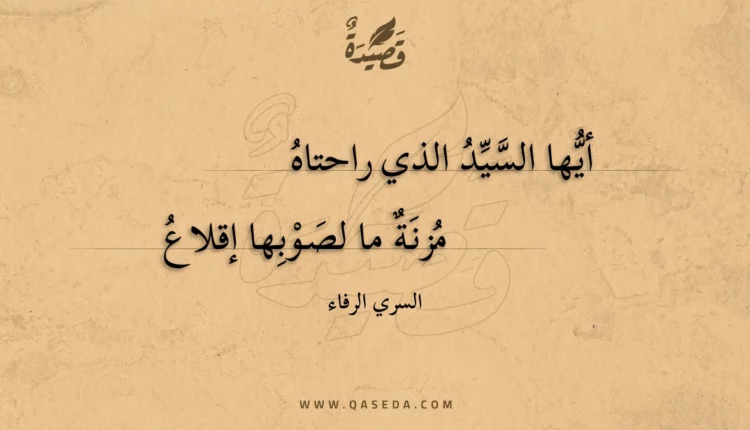 قَصِيدَةٌ
أيُّها السَّيِّدُ الذي راحتاهُ
مُزنَةٌ ما لصَوْبِها إقلاعُ
السري الرفاء
WWW.QASEDA.COM